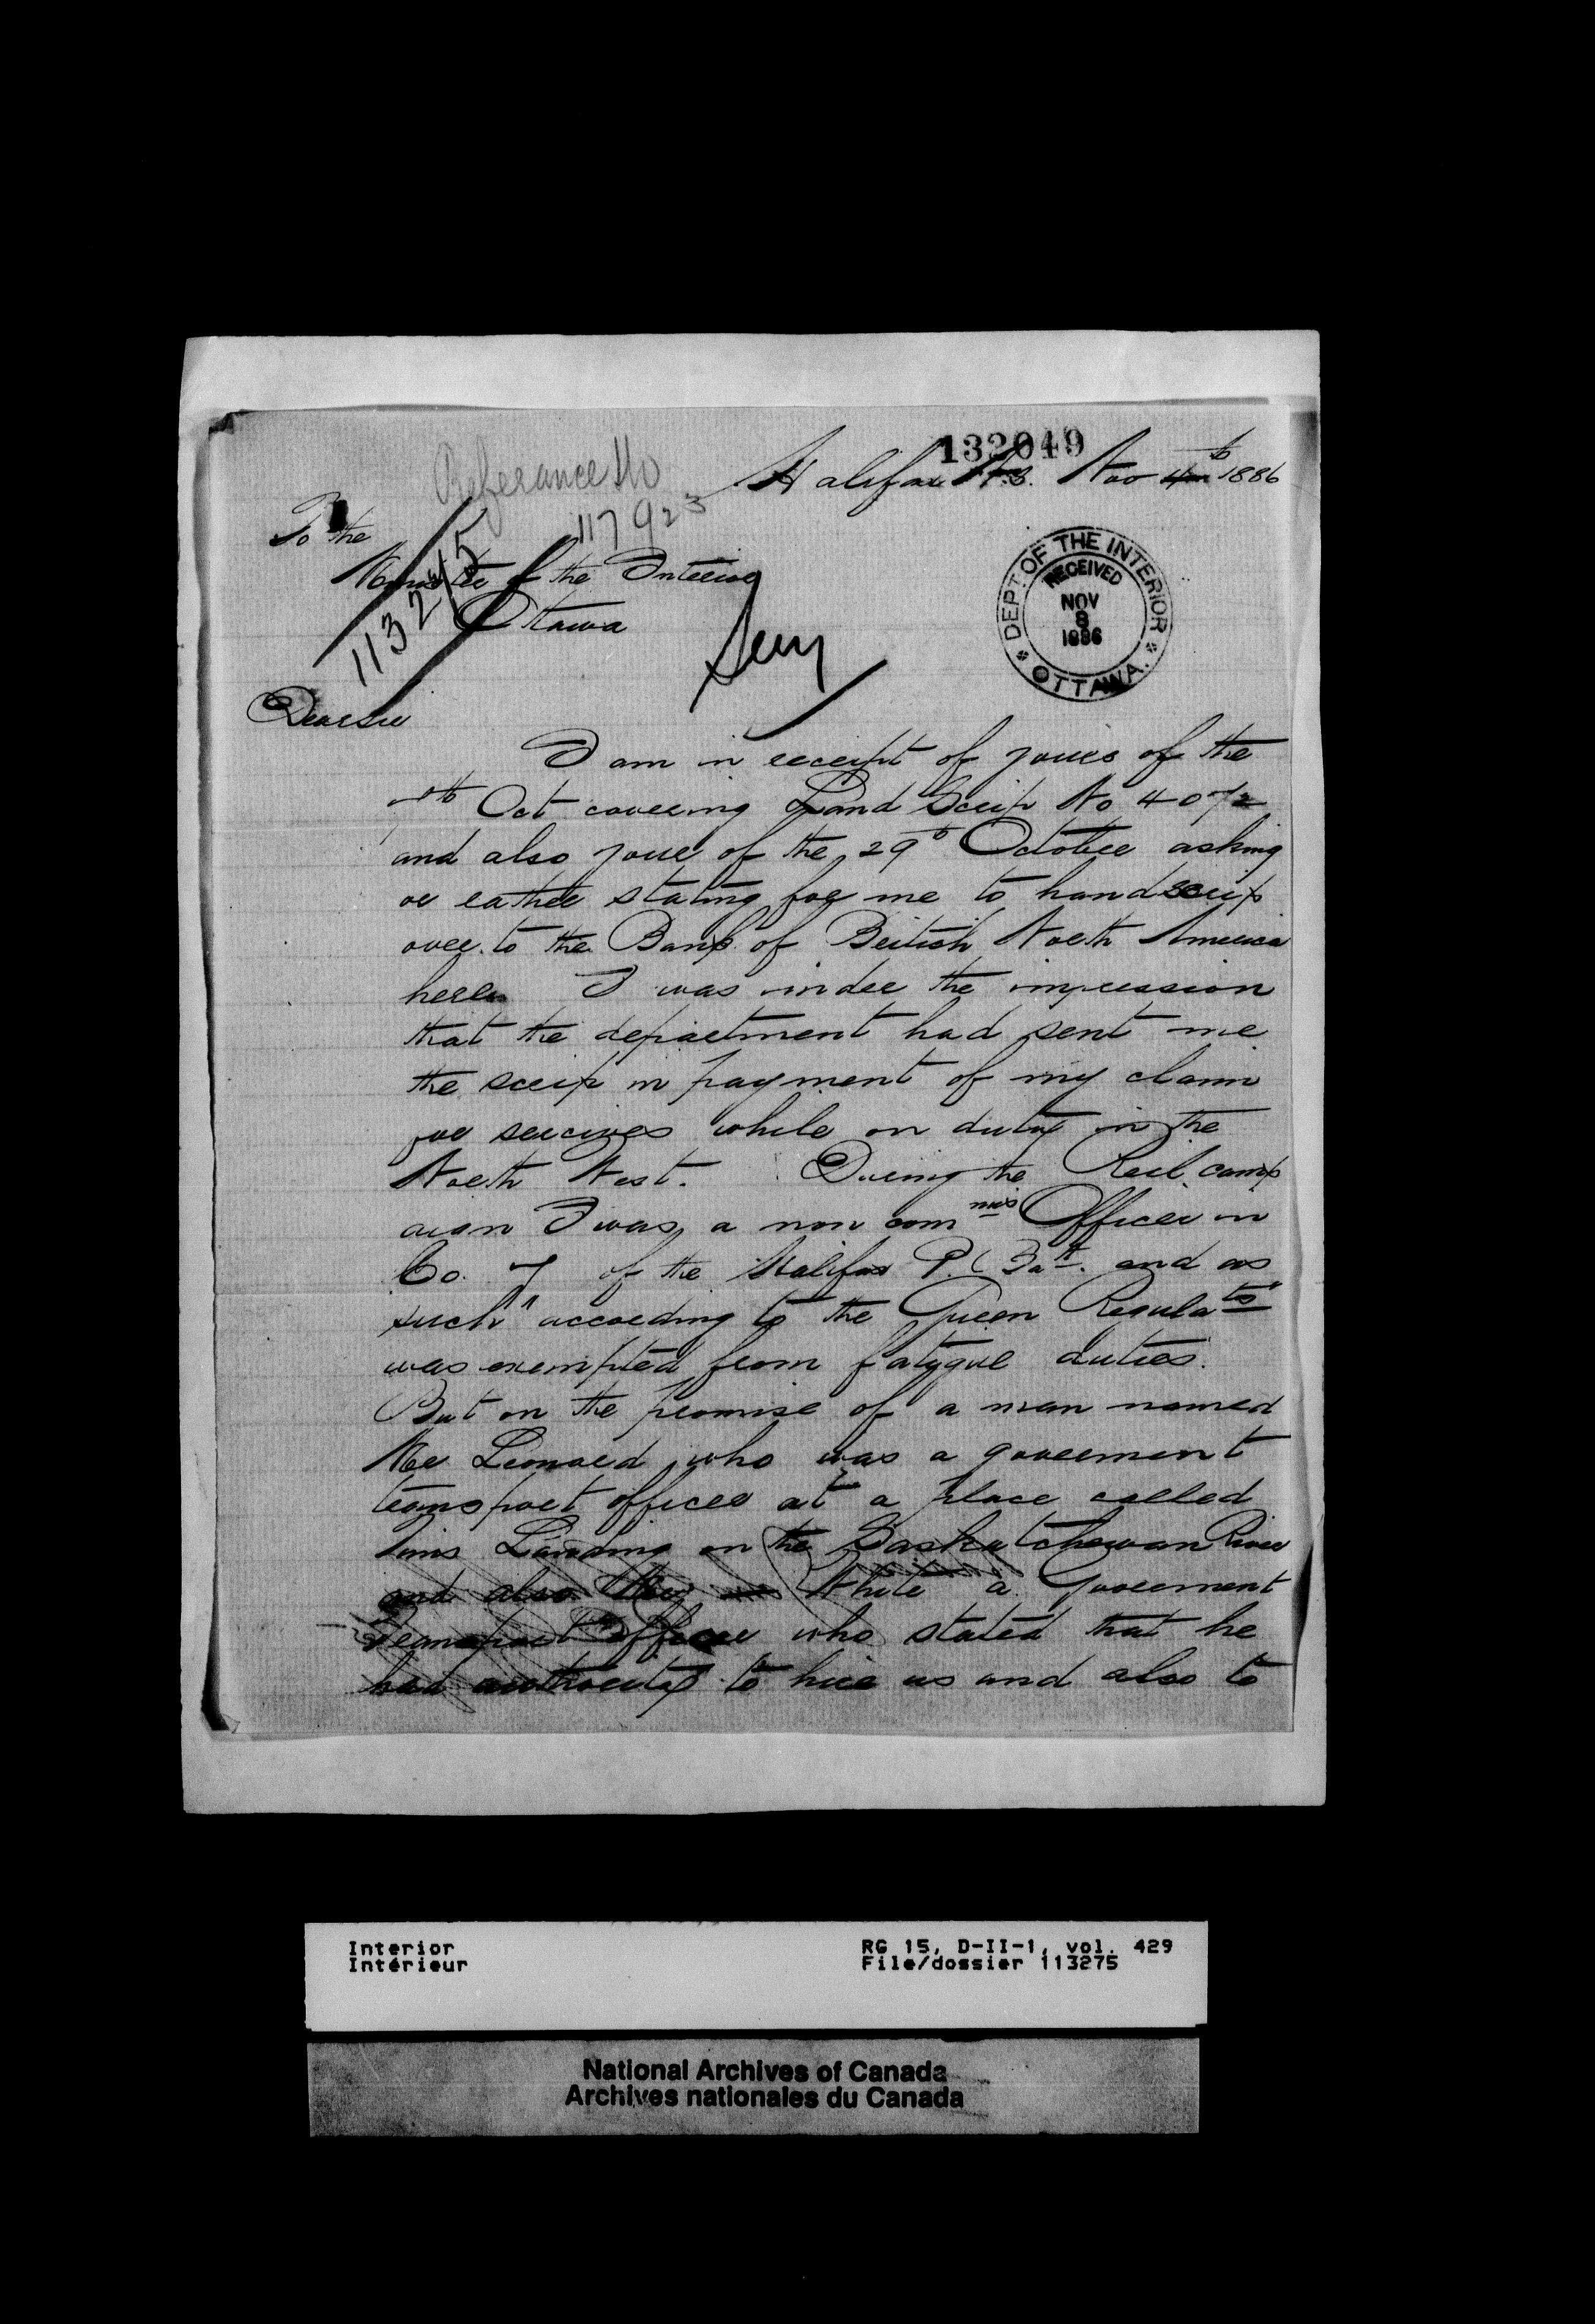 132049
Referance No
117923
Halifax N.S. Nov 4th 1886
To the
Minister of the Interior
Ottawa
113275
DEPT. OF THE INTERIOR
RECEIVED
NOV
8
1886
OTTAWA.
Dear Sir
I am in receipt of yours of the
7th Oct covering Land Scrip No 4072
and also your of the 29th October asking
or rather stating for me to hand scrip
over to the Bank of British North America
here I was under the impression
that the department had sent me
the scrip in payment of my claim
for services while on duty in the
North West. During the Reil camp
aign I was a non commis Officer in
Co. 7 of the Halifax P. Batt. and as
such "according to the Queen Regulats"
was exempted from fatygue duties.
But on the promise of a man named
Mr Leonard who was a goverment
transport officer at a place called
Landing on the Saskatchewan River
and also Mr White a Goverment
Transport officer who stated that he
had authority to hire us and also to
Interior
Intérieur
RG 15, D-II-1, vol. 429
File/dossier 113275
National Archives of Canada
Archives nationales du Canada